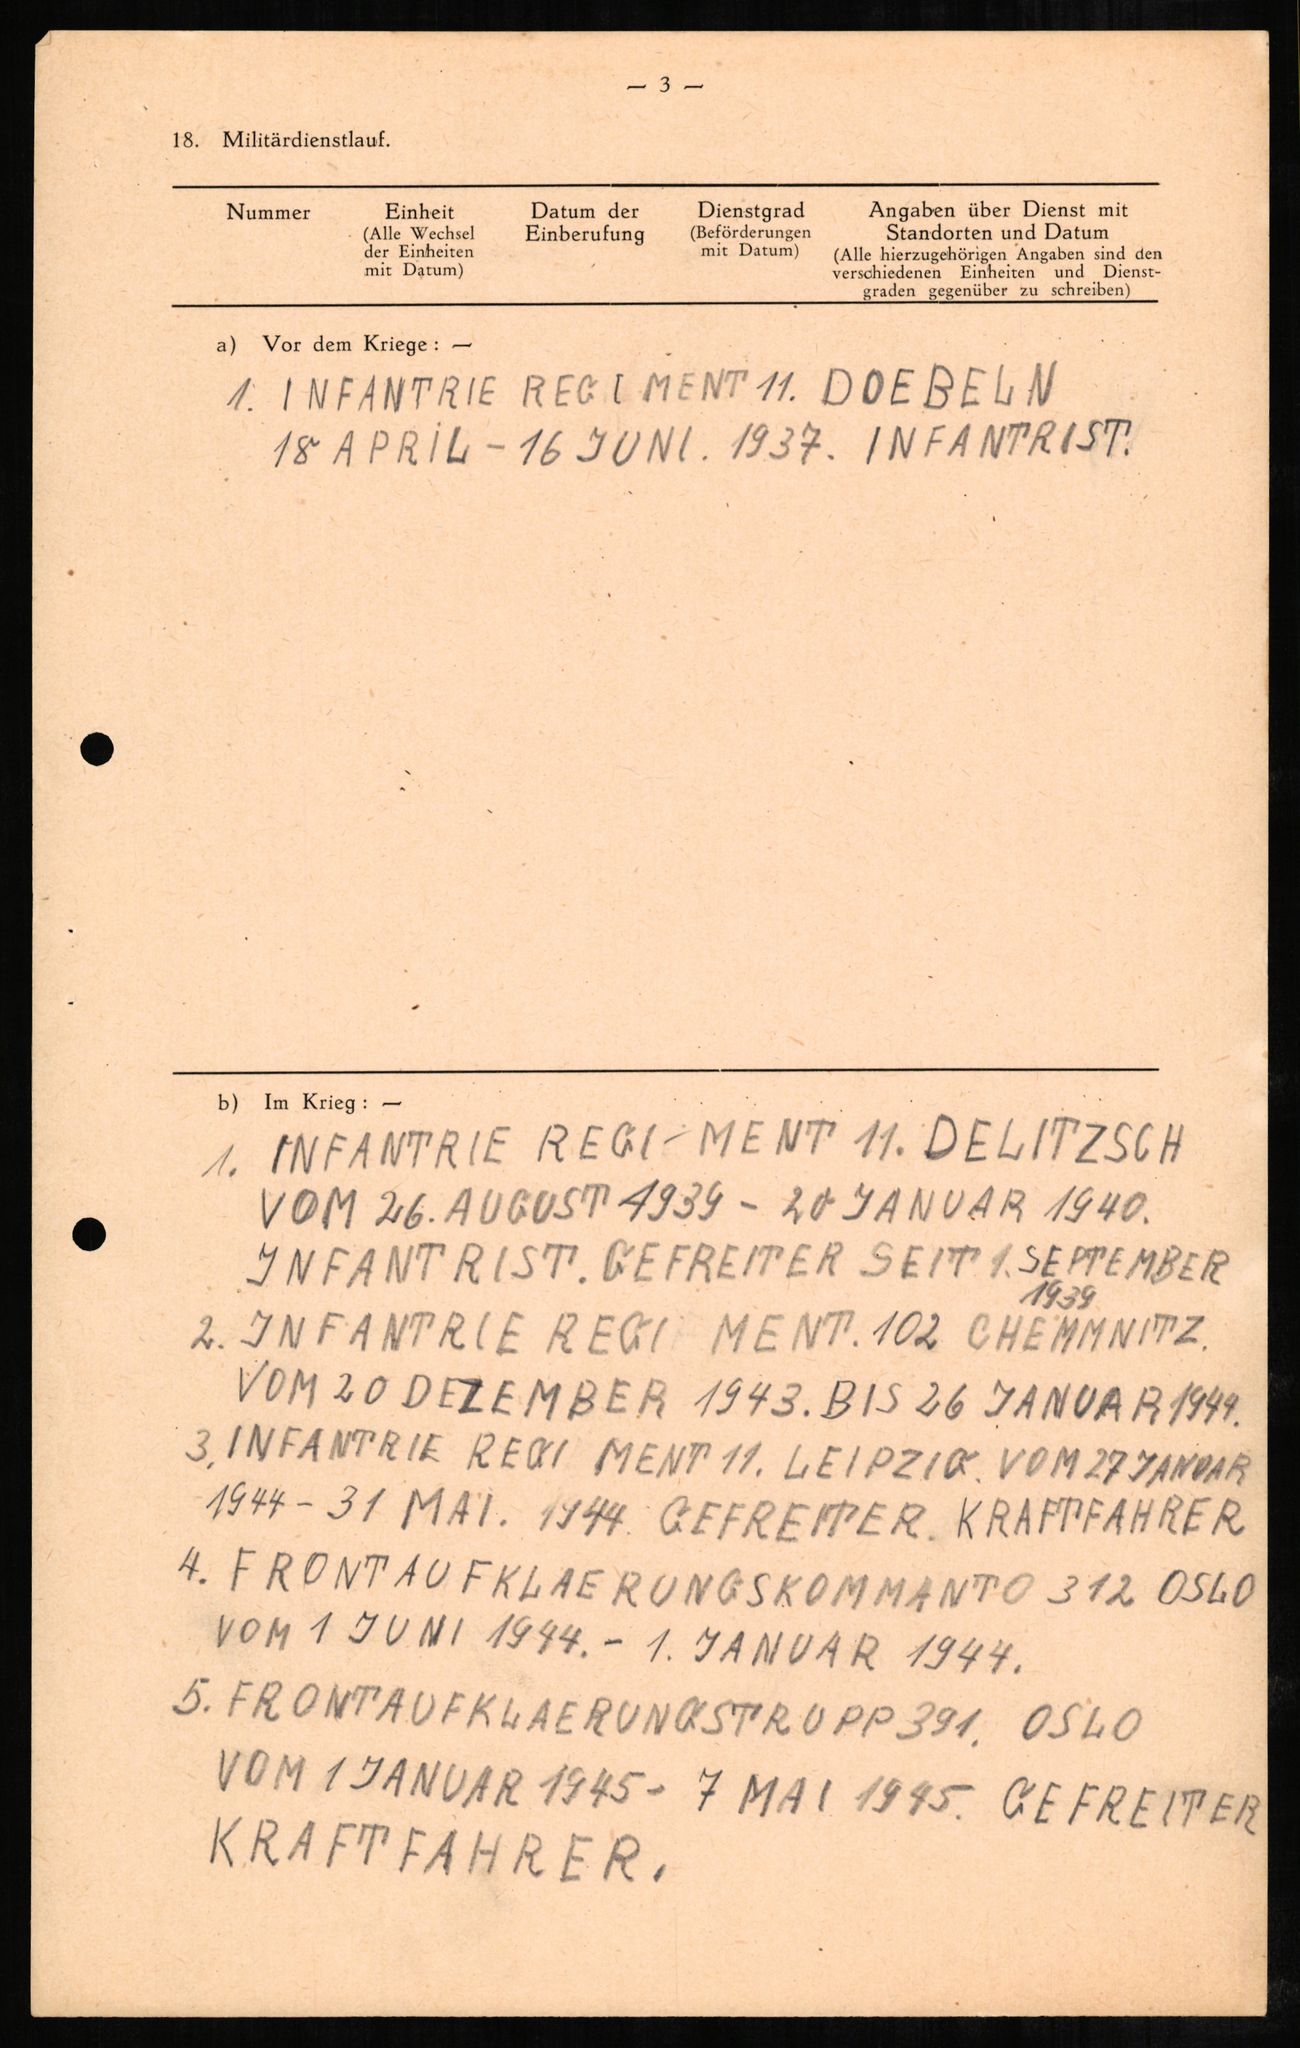 — 3 —
18. Militärdienstlauf.
Nummer Einheit Datum der Dienstgrad Angaben über Dienst mit
(Alle Wechsel Einberufung (Beförderungen Standorten und Datum
der Einheiten mit Datum) (Alle hierzugehörigen Angaben sind den
mit Datum) verschiedenen Einheiten und Dienst-
graden gegenüber zu schreiben)
a) Vor dem Kriege : —
1. INFANTRIE REGIMENT 11. DOEBELN
18 APRIL – 16 JUNI. 1937. INFANTRIST.
b) Im Krieg : —
1. INFANTRIE REGI-MENT 11. DELITZSCH
VOM 26. AUGUST 1939 – JANUAR 1940.
INFANTRIST. GEFREITER SEIT 1. SEPTEMBER
1939
2. INFANTRIE REGI MENT. 102 CHEMMNITZ.
VOM 20 DEZEMBER 1943. BIS 26 JANUAR 1944.
3. INFANTRIE REGI MENT 11. LEIPZIG. VOM 27 JANUAR
1944 – 31 MAI. 1944 GEFREITER. KRAFTFAHRER
4. FRONTAUFKLAERUNGSKOMMANTO 312 OSLO
VOM 1 JUNI 1944. – 1. JANUAR 1944.
5. FRONTAUFKLAERUNGSTRUPP 391. OSLO
VOM 1 JANUAR 1945 – 7 MAI 1945. GEFREITER
KRAFTFAHRER.